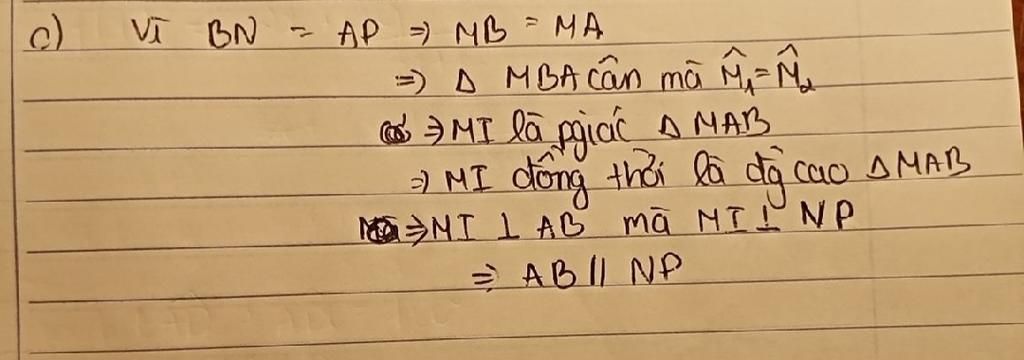 c) Vì BN = AP ⇒ MB = MA
⇒ Δ MBA cân mà M̂₁ = M̂₂
⇒ MI là pgiác Δ MAB
⇒ MI đồng thời là đg cao Δ MAB
⇒ MI ⊥ AB mà MI ⊥ NP
⇒ AB // NP